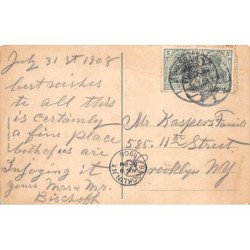 July 31st 1908
best wishes
to all this
is certainly
a fine place
both of us are
Injoying it
yours Mr & Mr.
Bischoff
5 5
Mr Kasper
585. 11th
Street.
Brooklyn NY
1908